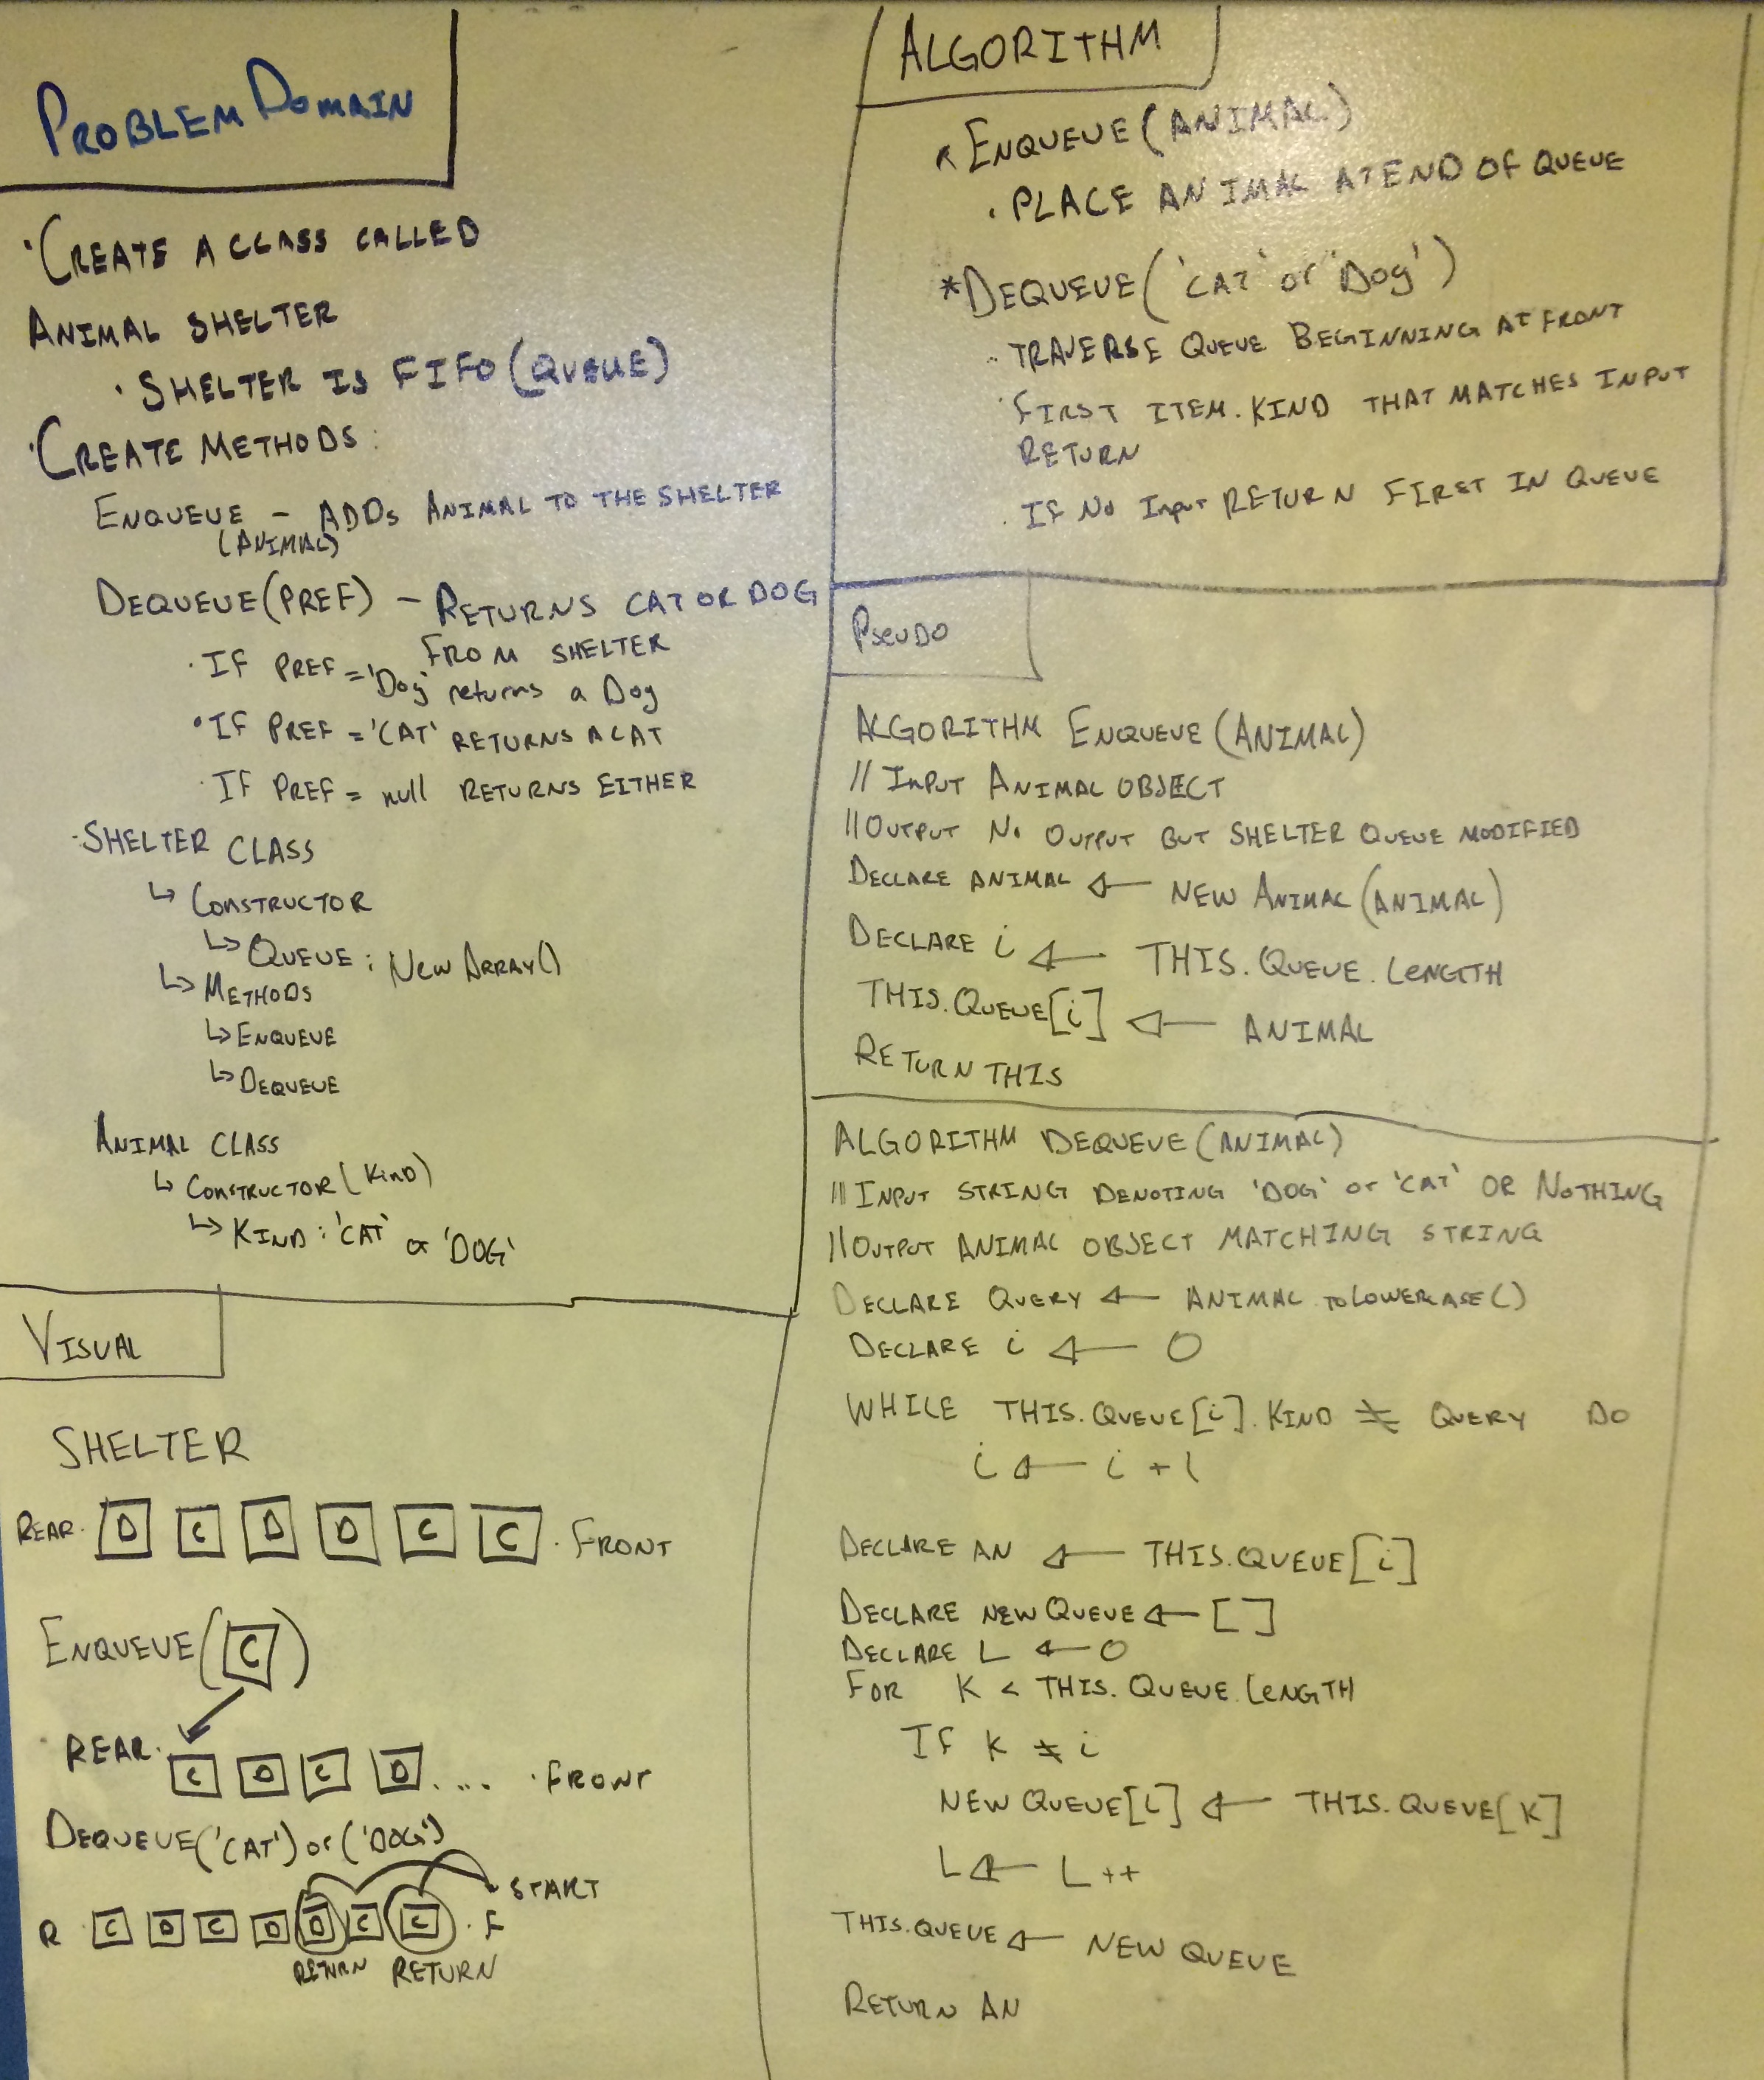 PROBLEM DOMAIN
· CREATE A CLASS CALLED
ANIMAL SHELTER
· SHELTER IS FIFO (QUEUE)
· CREATE METHODS:
ENQUEUE - ADDS ANIMAL TO THE SHELTER
(ANIMAL)
DEQUEUE(PREF) - RETURNS CAT OR DOG
FROM SHELTER
· IF PREF = 'Dog' returns a Dog
· IF PREF = 'CAT' RETURNS A CAT
· IF PREF = null RETURNS EITHER
· SHELTER CLASS
↳ CONSTRUCTOR
↳ QUEUE : NEW ARRAY()
↳ METHODS
↳ ENQUEUE
↳ DEQUEUE
ANIMAL CLASS
↳ CONSTRUCTOR (KIND)
↳ KIND : 'CAT' or 'DOG'
VISUAL
SHELTER
REAR · D C D D C C · FRONT
ENQUEUE( C )
· REAR · C D C D .... · FRONT
DEQUEUE('CAT') or ('DOG')
START
R C D C D D C C · F
RETURN RETURN
ALGORITHM
* ENQUEUE (ANIMAL)
· PLACE ANIMAL AT END OF QUEUE
* DEQUEUE ('CAT' or 'Dog')
· TRAVERSE QUEUE BEGINNING AT FRONT
· FIRST ITEM.KIND THAT MATCHES INPUT
RETURN
· IF NO INPUT RETURN FIRST IN QUEUE
PSEUDO
ALGORITHM ENQUEUE (ANIMAL)
// INPUT ANIMAL OBJECT
// OUTPUT NO OUTPUT BUT SHELTER QUEUE MODIFIED
DECLARE ANIMAL ← NEW ANIMAL (ANIMAL)
DECLARE i ← THIS.QUEUE.LENGTH
THIS.QUEUE[i] ← ANIMAL
RETURN THIS
ALGORITHM DEQUEUE (ANIMAL)
// INPUT STRING DENOTING 'DOG' or 'CAT' OR NOTHING
// OUTPUT ANIMAL OBJECT MATCHING STRING
DECLARE QUERY ← ANIMAL.TOLOWERCASE()
DECLARE i ← 0
WHILE THIS.QUEUE[i].KIND ≠ QUERY DO
i ← i + 1
DECLARE AN ← THIS.QUEUE[i]
DECLARE NEW QUEUE ← [ ]
DECLARE L ← 0
FOR K < THIS.QUEUE.LENGTH
IF K ≠ i
NEW QUEUE[L] ← THIS.QUEUE[K]
L ← L ++
THIS.QUEUE ← NEW QUEUE
RETURN AN